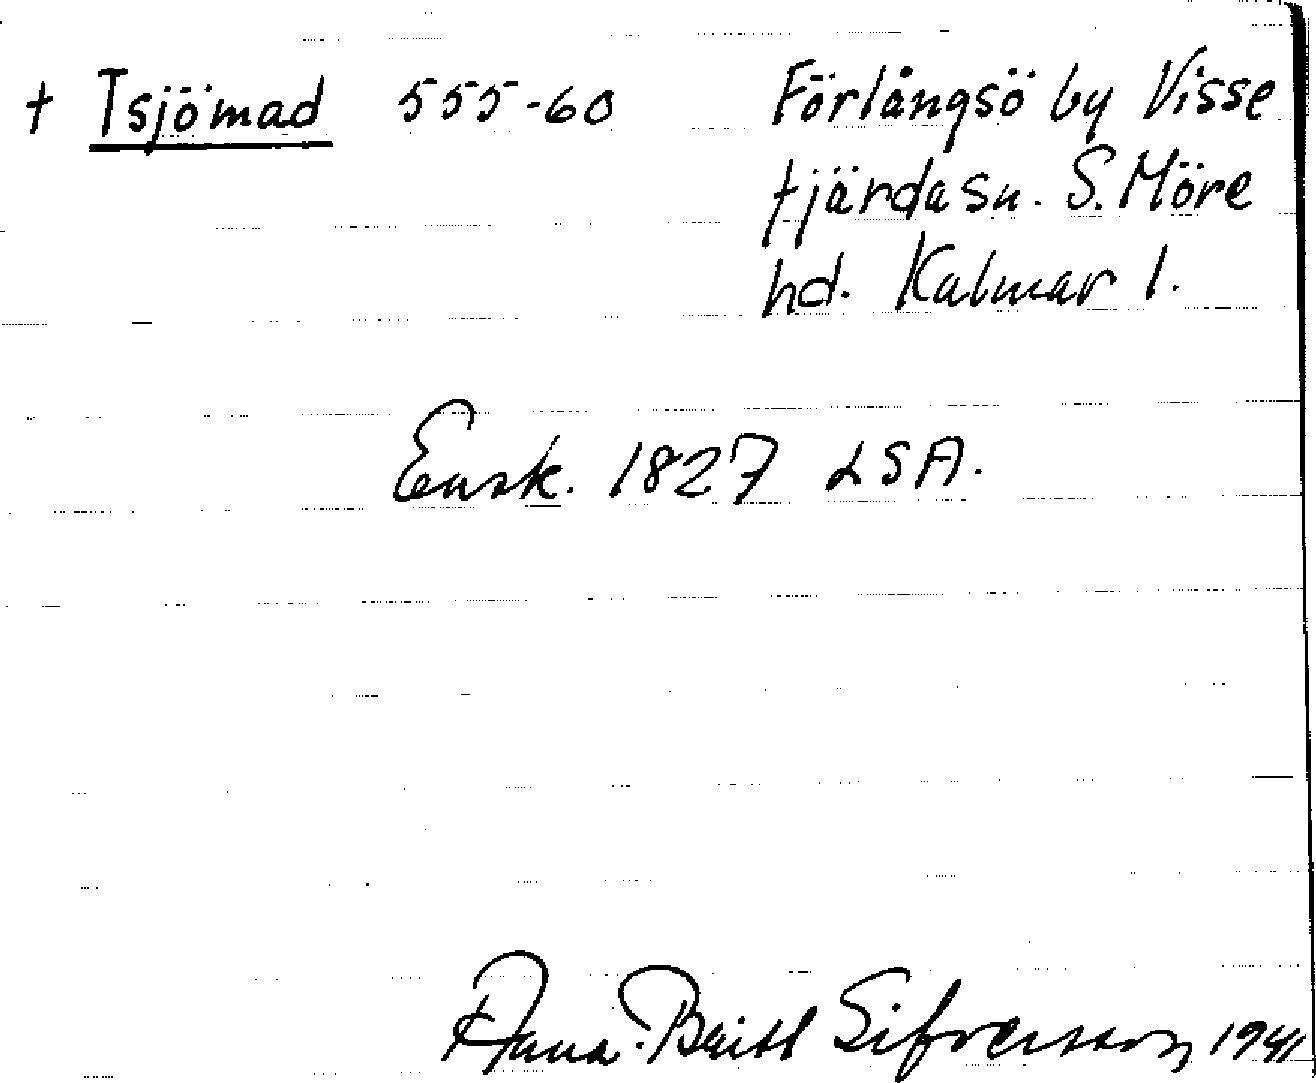 † Tsjömad 555-60 Förlångsö by Visse
fjärda sn. S. Möre
hd. Kalmar l.
Ensk. 1827 LSA.
Anna-Britt Sifversson 1941